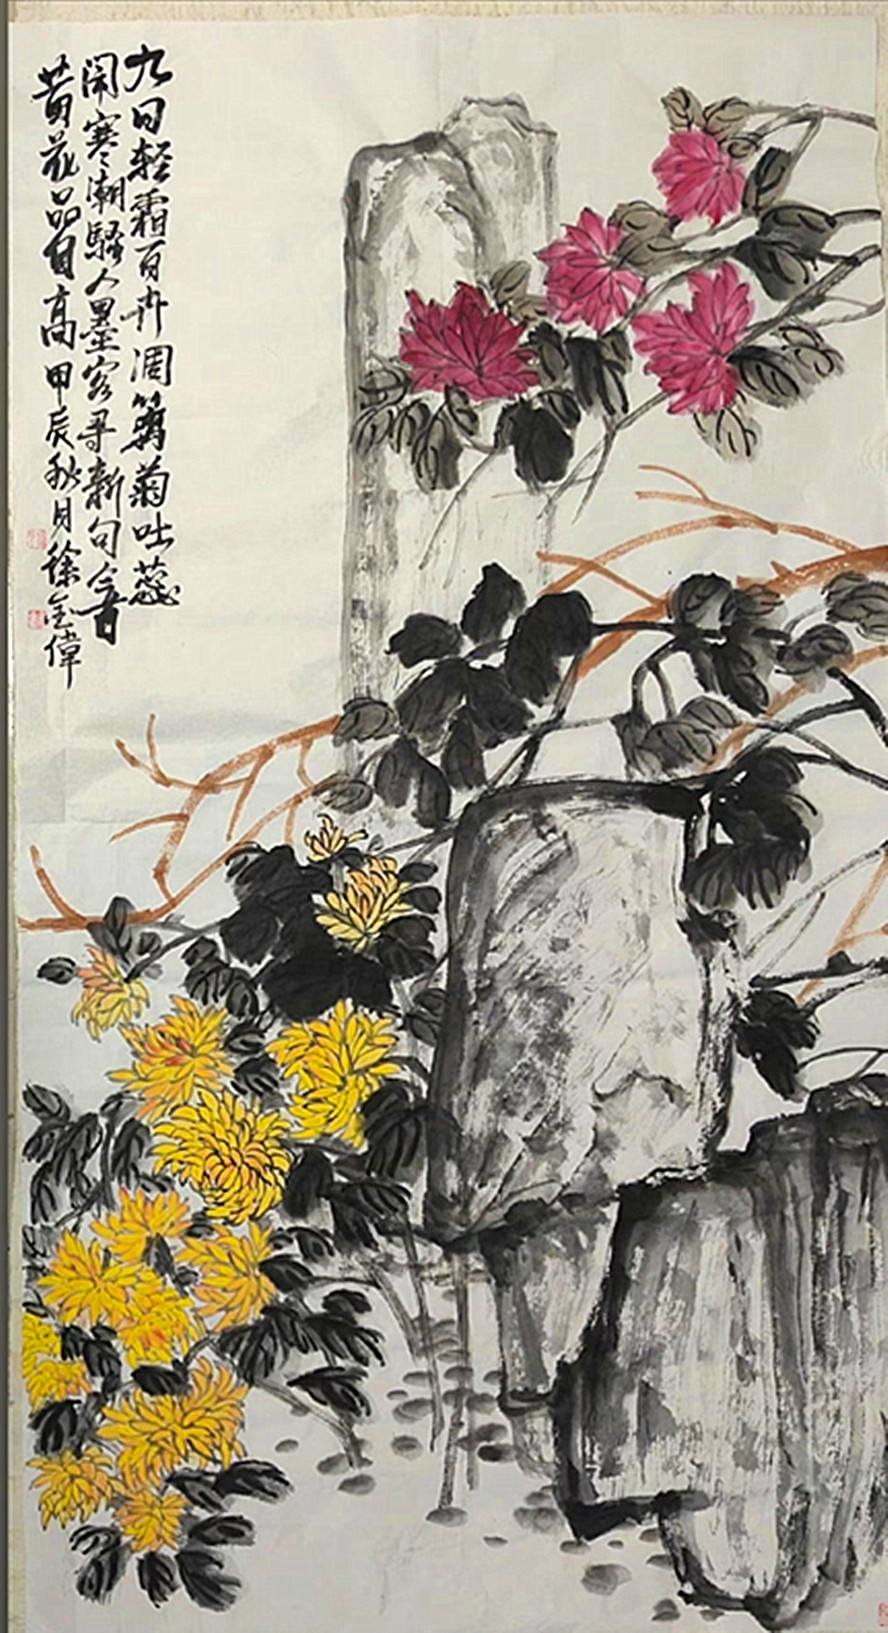 九日轻霜百卉凋篱菊吐蕊
闹寒潮騷人墨客寻新句
黄花品自高甲辰秋月徐金偉